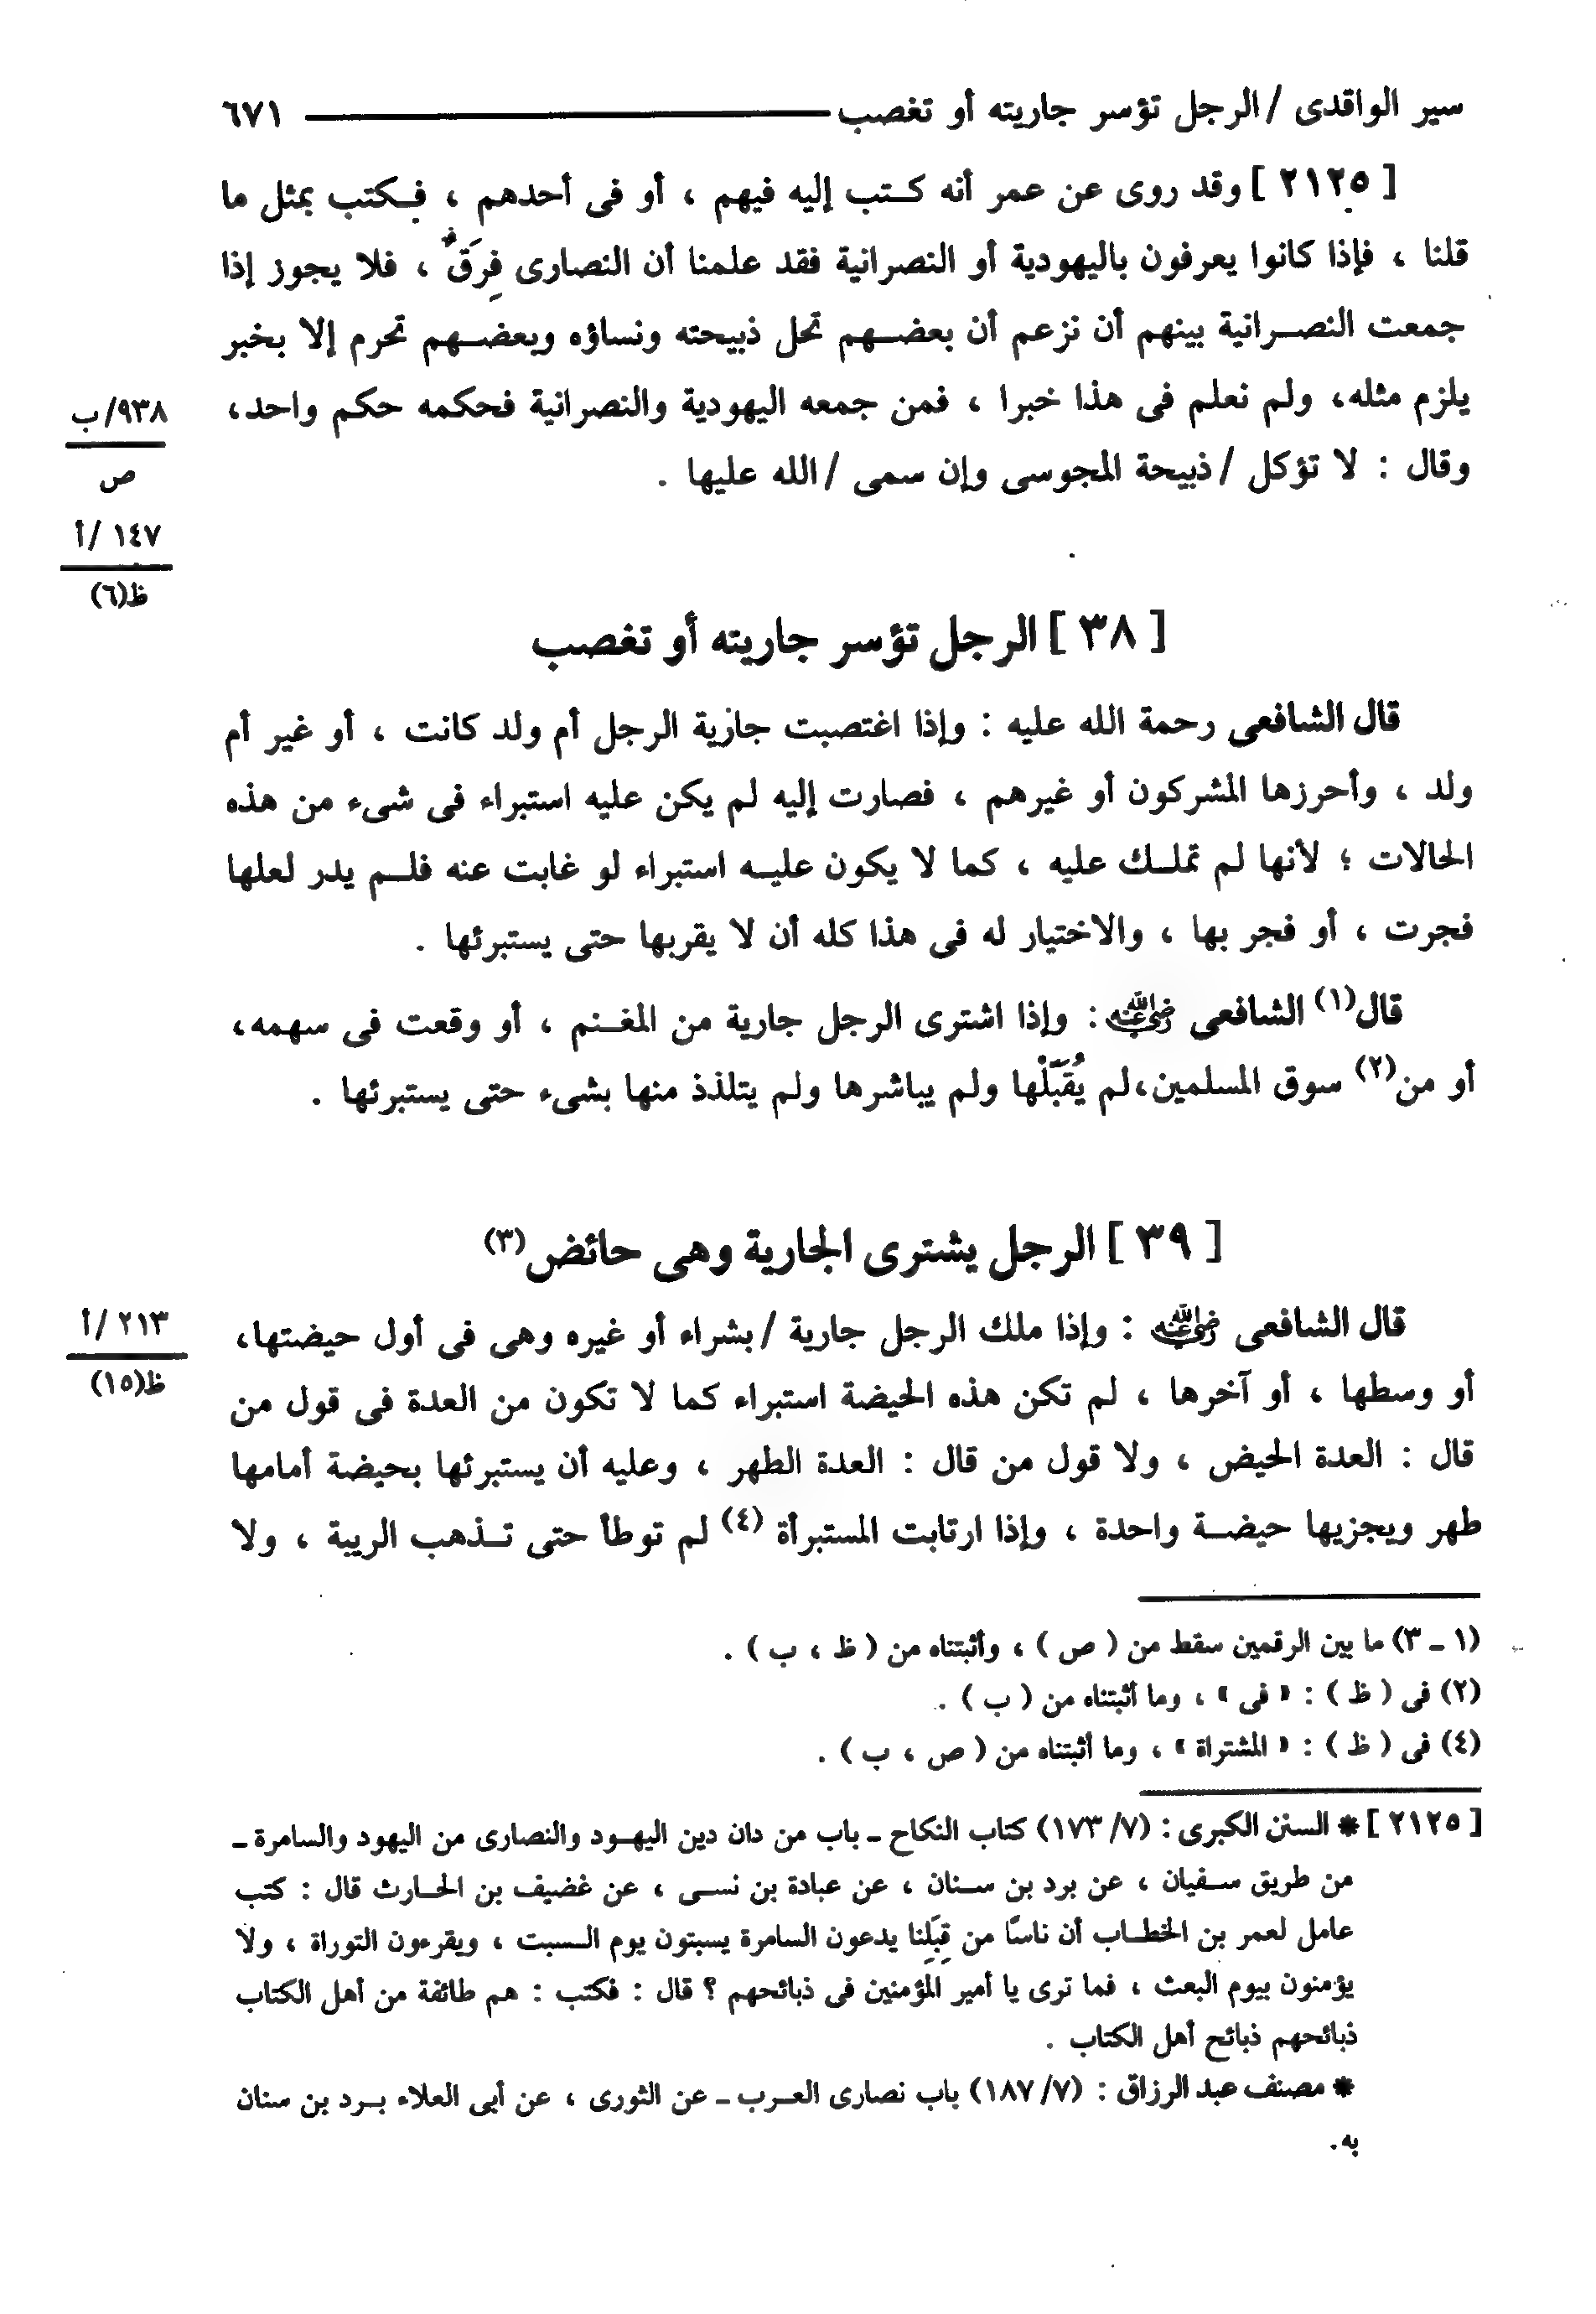 سير الواقدى / الرجل تؤسر جاريته أو تغصب ــــــــــ ٦٧١
[ ٢١٢٥ ] وقد روى عن عمر أنه كتب إليه فيهم ، أو فى أحدهم ، فكتب بمثل ما
قلنا ، فإذا كانوا يعرفون باليهودية أو النصرانية فقد علمنا أن النصارى فِرَقٌ ، فلا يجوز إذا
جمعت النصرانية بينهم أن نزعم أن بعضهم تحل ذبيحته ونساؤه وبعضهم تحرم إلا بخبر
يلزم مثله، ولم نعلم فى هذا خبرا ، فمن جمعه اليهودية والنصرانية فحكمه حكم واحد،
٩٣٨/ب
ص
وقال : لا تؤكل / ذبيحة المجوسى وإن سمى / الله عليها .
١٤٧ /أ
ظ(٦)
[ ٣٨ ] الرجل تؤسر جاريته أو تغصب
قال الشافعى رحمة الله عليه : وإذا اغتصبت جازية الرجل أم ولد كانت ، أو غير أم
ولد ، وأحرزها المشركون أو غيرهم ، فصارت إليه لم يكن عليه استبراء فى شىء من هذه
الحالات ؛ لأنها لم تملك عليه ، كما لا يكون عليه استبراء لو غابت عنه فلم يدر لعلها
فجرت ، أو فجر بها ، والاختيار له فى هذا كله أن لا يقربها حتى يستبرئها .
قال(١) الشافعى رضي الله عنه : وإذا اشترى الرجل جارية من المغنم ، أو وقعت فى سهمه،
أو من(٢) سوق المسلمين،لم يُقَبِّلْها ولم يباشرها ولم يتلذذ منها بشىء حتى يستبرئها .
[ ٣٩ ] الرجل يشترى الجارية وهى حائض(٣)
قال الشافعى رضي الله عنه : وإذا ملك الرجل جارية / بشراء أو غيره وهى فى أول حيضتها،
٢١٣ /أ
ظ(١٥)
أو وسطها ، أو آخرها ، لم تكن هذه الحيضة استبراء كما لا تكون من العدة فى قول من
قال : العدة الحيض ، ولا قول من قال : العدة الطهر ، وعليه أن يستبرئها بحيضة أمامها
طهر ويجزيها حيضة واحدة ، وإذا ارتابت المستبرأة (٤) لم توطأ حتى تذهب الريبة ، ولا
(١ ـ ٣) ما بين الرقمين سقط من ( ص ) ، وأثبتناه من ( ظ ، ب ) .
(٢) فى ( ظ ) : « فى » ، وما أثبتناه من ( ب ) .
(٤) فى ( ظ ) : « المشتراة » ، وما أثبتناه من ( ص ، ب ) .
[ ٢١٢٥ ] * السنن الكبرى : (٧/ ١٧٣) كتاب النكاح ـ باب من دان دين اليهود والنصارى من اليهود والسامرة ـ
من طريق سفيان ، عن برد بن سنان ، عن عبادة بن نسى ، عن غضيف بن الحارث قال : كتب
عامل لعمر بن الخطاب أن ناسًا من قِبَلِنا يدعون السامرة يسبتون يوم السبت ، ويقرءون التوراة ، ولا
يؤمنون بيوم البعث ، فما ترى يا أمير المؤمنين فى ذبائحهم ؟ قال : فكتب : هم طائفة من أهل الكتاب
ذبائحهم ذبائح أهل الكتاب .
* مصنف عبد الرزاق : (٧/ ١٨٧) باب نصارى العرب ـ عن الثورى ، عن أبى العلاء برد بن سنان
به .